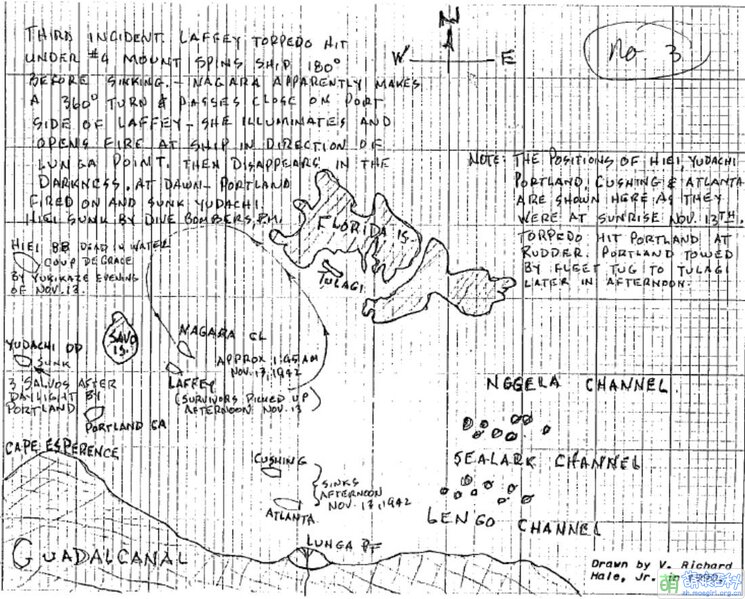 THIRD INCIDENT. LAFFEY TORPEDO HIT
UNDER #4 MOUNT SPINS SHIP 180°
BEFORE SINKING. - NAGARA APPARENTLY MAKES
A 360° TURN & PASSES CLOSE ON PORT
SIDE OF LAFFEY - SHE ILLUMINATES AND
OPENS FIRE AT SHIP IN DIRECTION OF
LUNGA POINT. THEN DISAPPEARS IN THE
DARKNESS. AT DAWN- PORTLAND
FIRED ON AND SUNK YUDACHI.
HIEI SUNK BY DIVE BOMBERS, P.M.
N
A
W
E
No 3
NOTE: THE POSITIONS OF HIEI, YUDACHI
PORTLAND, CUSHING & ATLANTA
ARE SHOWN HERE AS THEY
WERE AT SUNRISE NOV. 13TH.
TORPEDO HIT PORTLAND AT
RUDDER. PORTLAND TOWED
BY FLEET TUG TO TULAGI
LATER IN AFTERNOON.
HIEI BB DEAD IN WATER
COUP DE GRACE
BY YUKIKAZE EVENING
OF NOV. 13.
FLORIDA IS.
TULAGI
SAVO
IS.
NAGARA CL
APPROX 1:45AM
NOV. 13, 1942
LAFFEY
(SURVIVORS PICKED UP)
AFTERNOON NOV. 13
YUDACHI DD
SUNK
3 SALVOS AFTER
DAYLIGHT BY
PORTLAND
PORTLAND CA
NGGELA CHANNEL
SEALARK CHANNEL
LENGO CHANNEL
CAPE ESPERENCE
CUSHING
ATLANTA
SINKS
AFTERNOON
NOV. 13, 1942
LUNGA PT
GUADALCANAL
Drawn by V. Richard
Hale, Jr. in 1990.